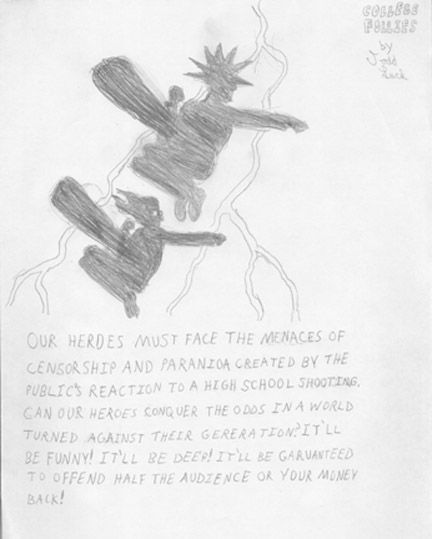 COLLEGE
FOLLIES
by
Todd
OUR HEROES MUST FACE THE MENACES OF
CENSORSHIP AND PARANIOA CREATED BY THE
PUBLIC'S REACTION TO A HIGH SCHOOL SHOOTING.
CAN OUR HEROES CONQUER THE ODDS IN A WORLD
TURNED AGAINST THEIR GERERATION? IT'LL
BE FUNNY! IT'LL BE DEEP! IT'LL BE GARUNTEED
TO OFFEND HALF THE AUDIENCE OR YOUR MONEY
BACK!